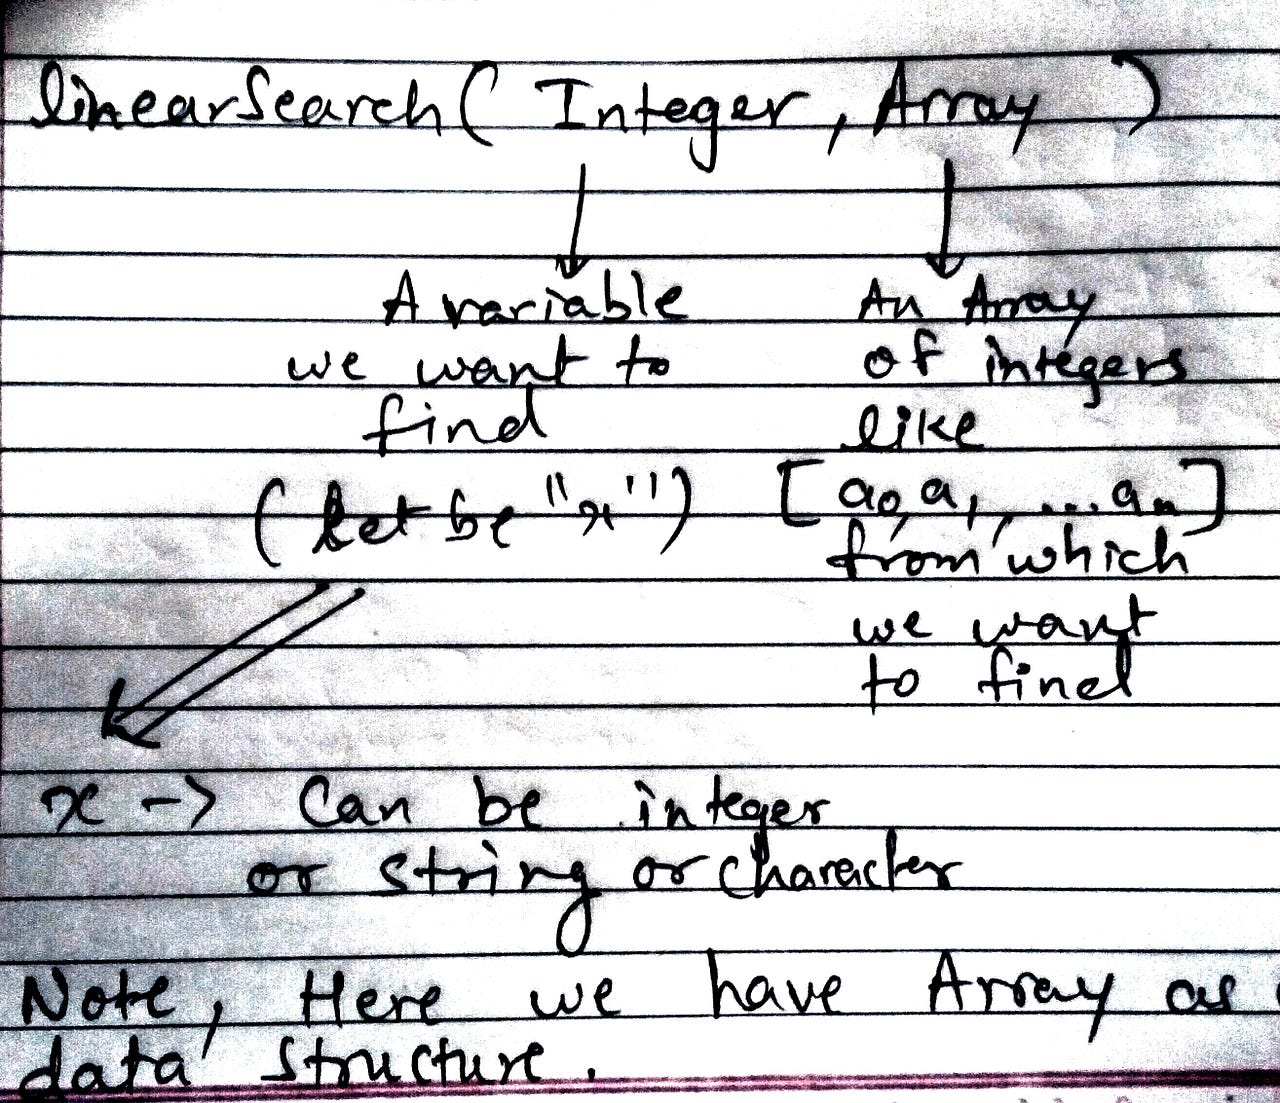 linearSearch( Integer, Array )
A variable
we want to
find
(let be "x")
An Array
of integers
like
[a0, a1, ... an]
from which
we want
to find
x -> Can be integer
or string or character
Note, Here we have Array as
data structure.